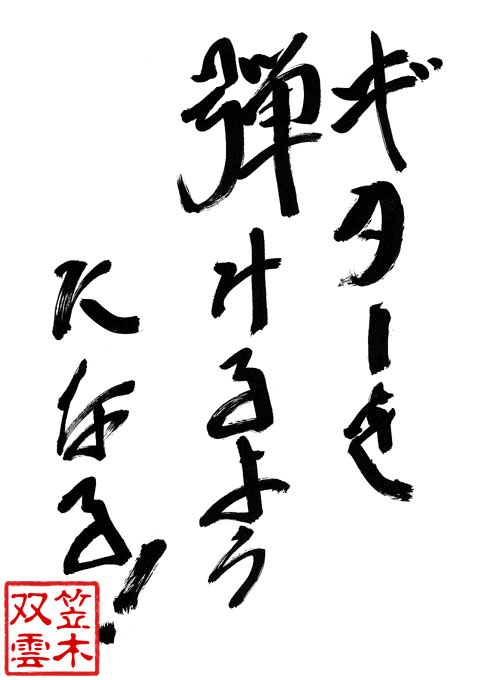 ギターを
弾けるよう
になる!
笠木
双雲